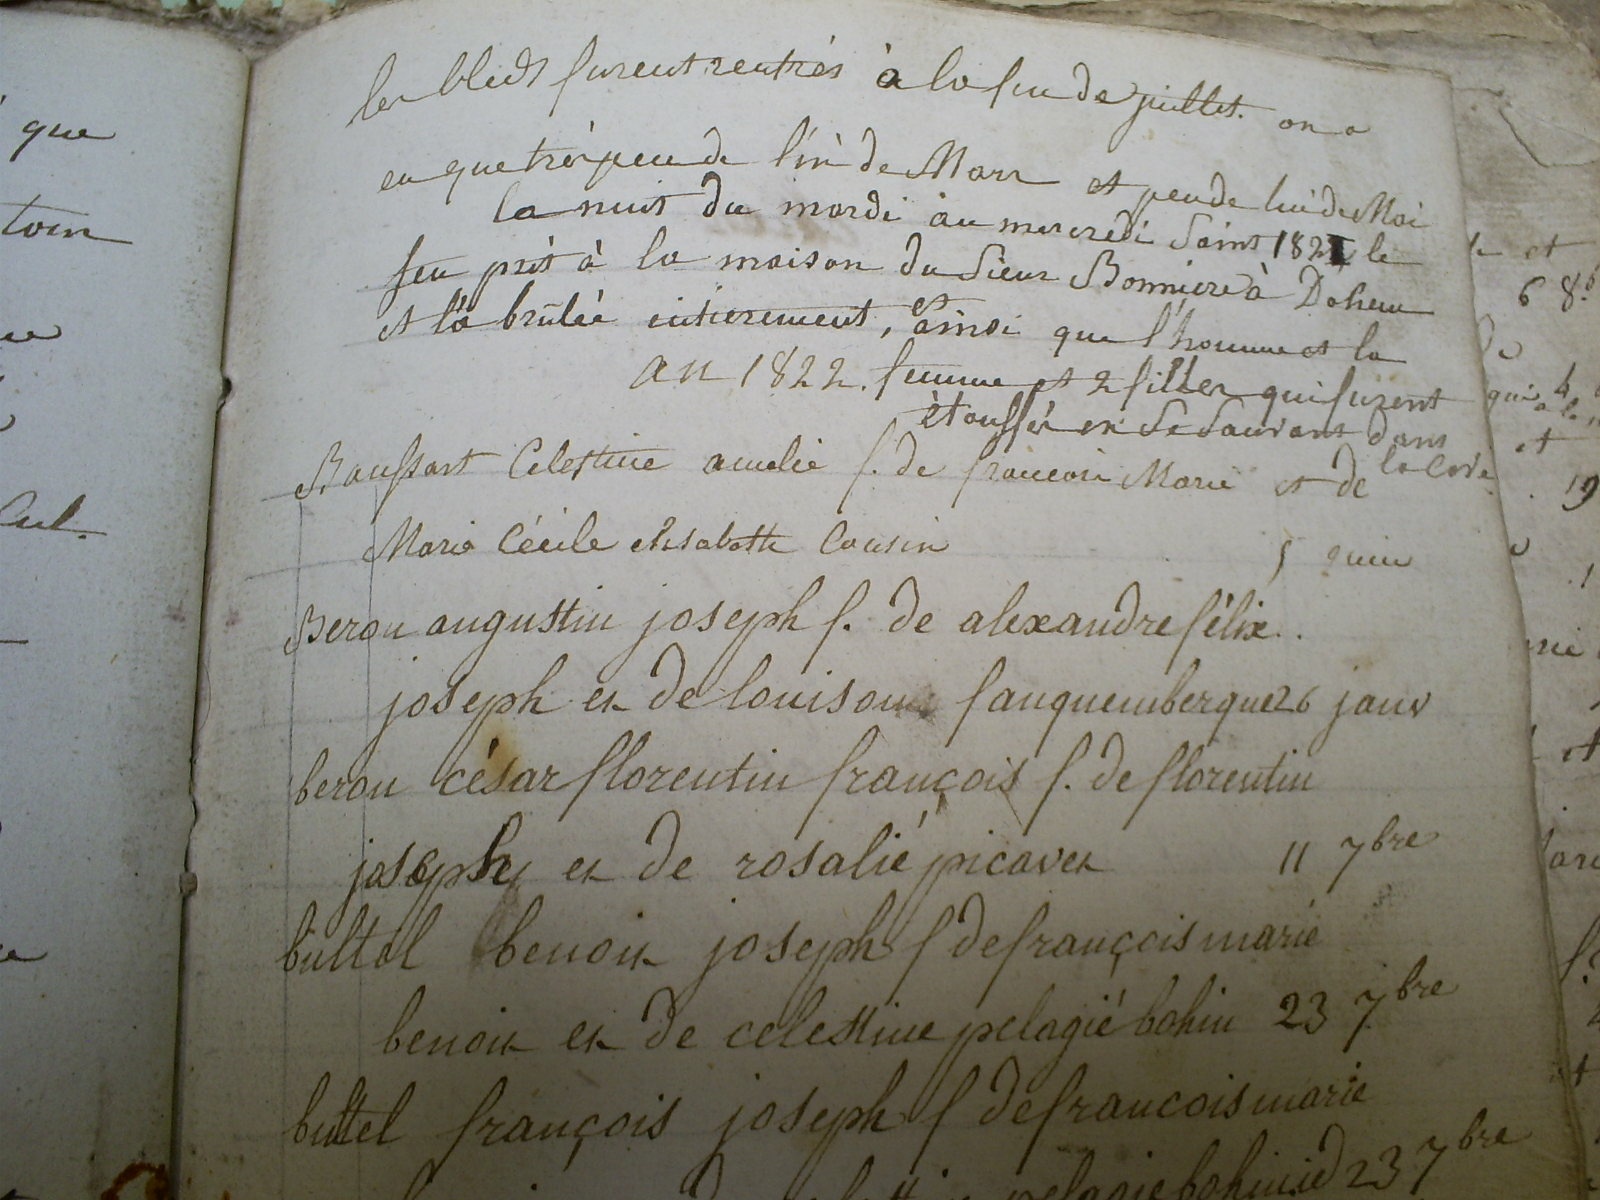 que
les bleds furent rentrés à la fin de juillet. on a
eu que trés peu de lin de Mars et peu de lin de Mai
la nuit du mardi au mercredi Saint 1821 le
feu prit à la maison du Sieur Bonniere à Dohem
et l'a brulée entierement, et ainsi que l'homme et la
an 1822. femme et 2 filles qui furent
étouffés en Se Sauvant dans
la Cave
Baussart Celestine amelie f. de francois Marie et de
Marie Cécile elisabette Cousin 5 juin
Berou augustin joseph f. de alexandre félix..
joseph et de louison fauquembergue 26 janv
berou césar florentin françois f. de florentin
joseph et de rosalie picavet 11 7bre
bultel benoit joseph f de françois marie
benoit et de celestine pelagie bohin 23 7bre
bultel françois joseph f de francois marie
pelagie bohin id 23 7bre